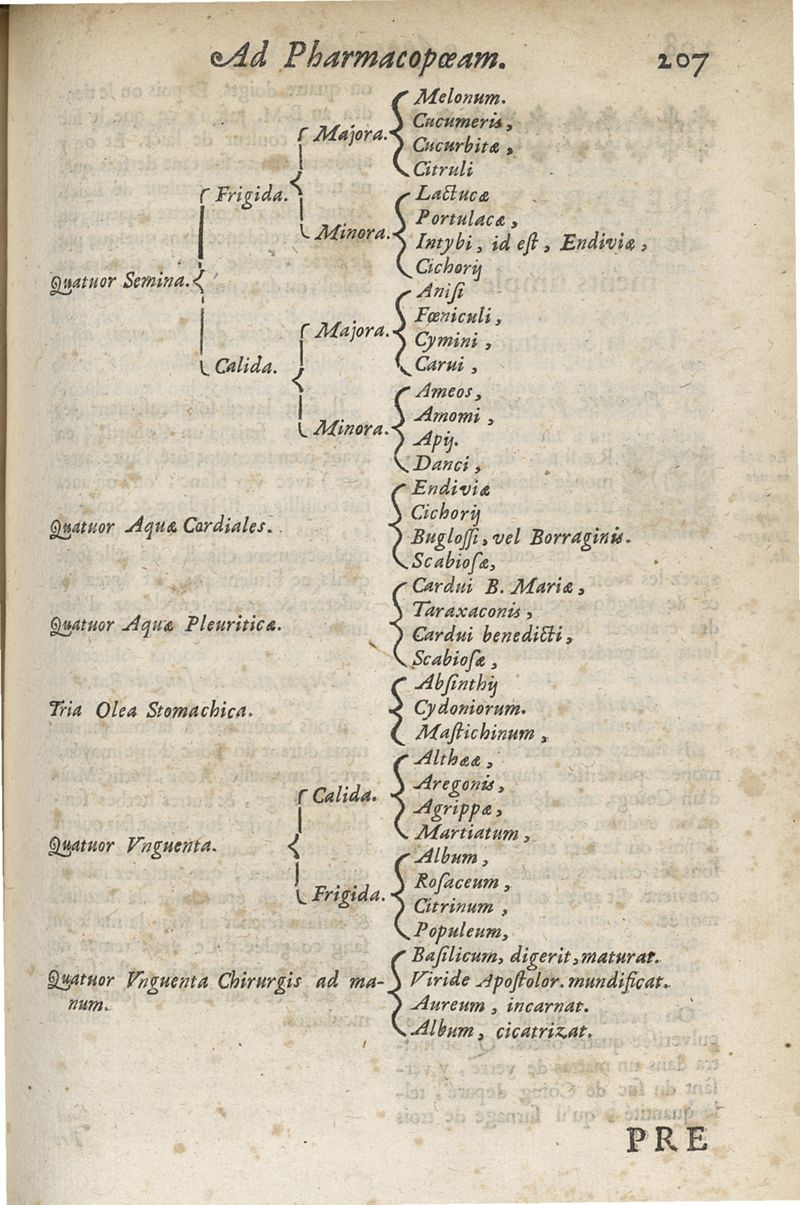 Ad Pharmacopœam. 207
Melonum.
Majora. Cucumeris,
Cucurbitæ,
Citruli
Frigida. Lactucæ
Portulacæ,
Minora. Intybi, id eſt, Endiviæ,
Cichorij
Quatuor Semina.
Aniſi
Fœniculi,
Majora. Cymini,
Calida. Carui,
Ameos,
Amomi,
Minora. Apij.
Danci,
Endiviæ
Cichorij
Quatuor Aquæ Cordiales. Bugloſſi, vel Borraginis.
Scabioſæ,
Cardui B. Mariæ,
Taraxaconis,
Quatuor Aquæ Pleuriticæ. Cardui benedicti,
Scabioſæ,
Abſinthij
Tria Olea Stomachica. Cydoniorum.
Maſtichinum,
Althææ,
Calida. Aregonis,
Agrippæ,
Martiatum,
Quatuor Vnguenta.
Album,
Roſaceum,
Frigida. Citrinum,
Populeum,
Baſilicum, digerit, maturat.
Quatuor Vnguenta Chirurgis ad ma- Viride Apoſtolor. mundificat.
num. Aureum, incarnat.
Album, cicatrizat.
PRE